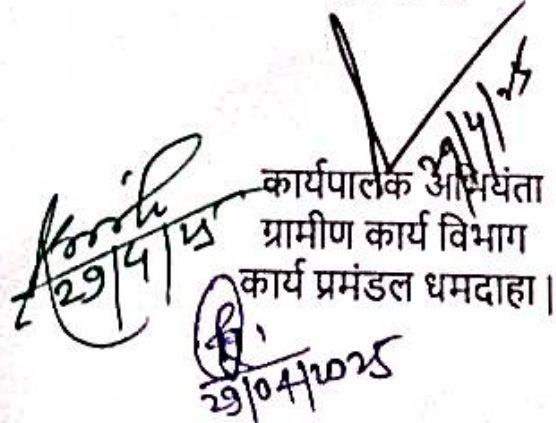 29/4/25
कार्यपालक अभियंता
ग्रामीण कार्य विभाग
29/4/25
कार्य प्रमंडल धमदाहा।
29/04/2025